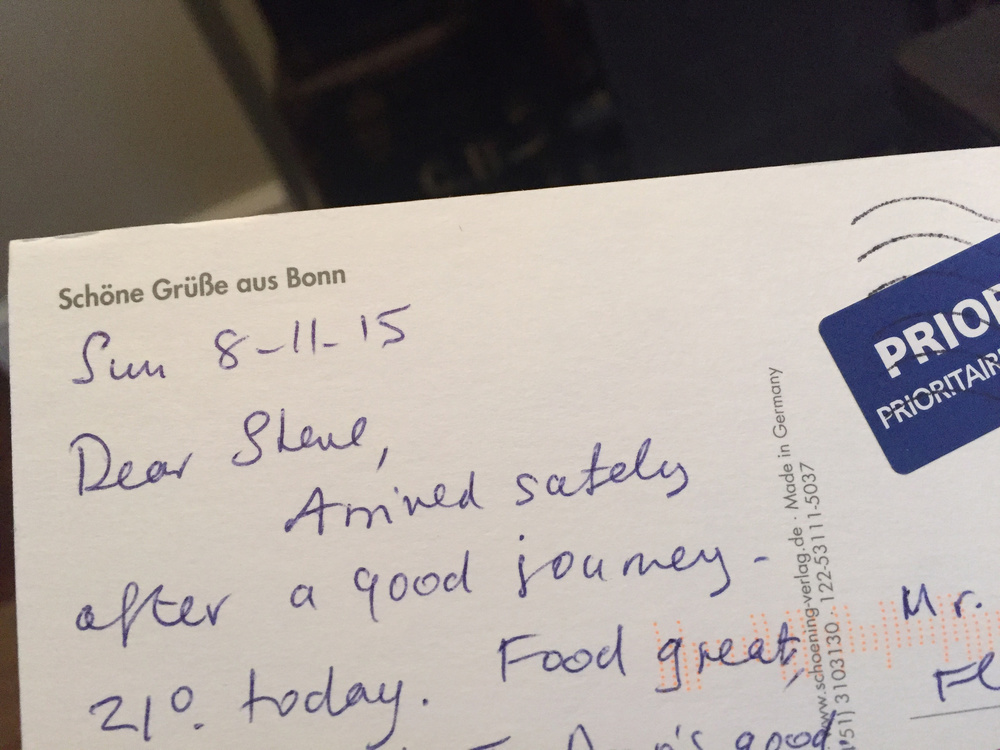 Schöne Grüße aus Bonn
Sun 8-11-15
Dear Steve,
Arrived safely
after a good journey -
21º. today. Food great,
good
www.schoening-verlag.de · Made in Germany
51) 3103130 · 122-53111-5037
PRIOR
PRIORITAIR
Mr.
Fl